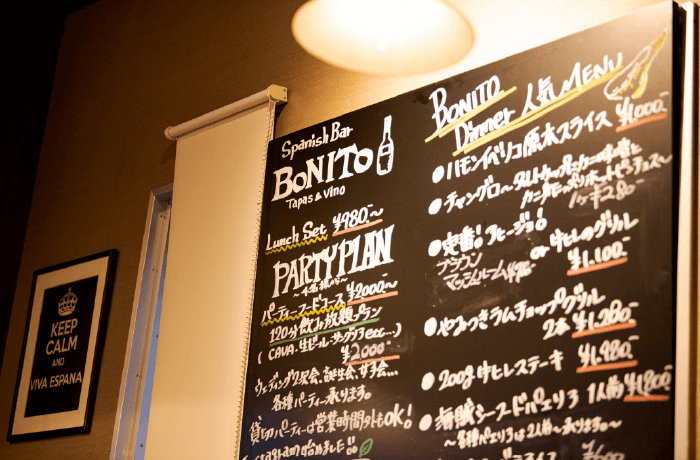 KEEP
CALM
AND
VIVA ESPANA
Spanish Bar
BONITO
Tapas & Vino
Lunch Set ¥980.~
PARTY PLAN
~4名様から~
パーティーフードコース ¥2000~
120分飲み放題プラン
(CAVA・生ビール・サングリア etc...)
¥2000-
ウェディング2次会、誕生会、女子会...
各種パーティー承ります。
貸切パーティーは営業時間外もOK!
始めました!!
BONITO
Dinner 人気 MENU
●ハモンイベリコ原木スライス ¥1,000-
●チャングロ~
1ヶ ¥280-
●定番!アヒージョ!
マッシュルーム
or 牛ヒレのグリル
¥1,100-
●やみつきラムチョップグリル
2本 ¥1,280-
●200g 牛ヒレステーキ ¥1,980-
●海賊シーフードパエリア 1人前 ¥1,800-
~各種パエリアは2人前~承ります~
¥600